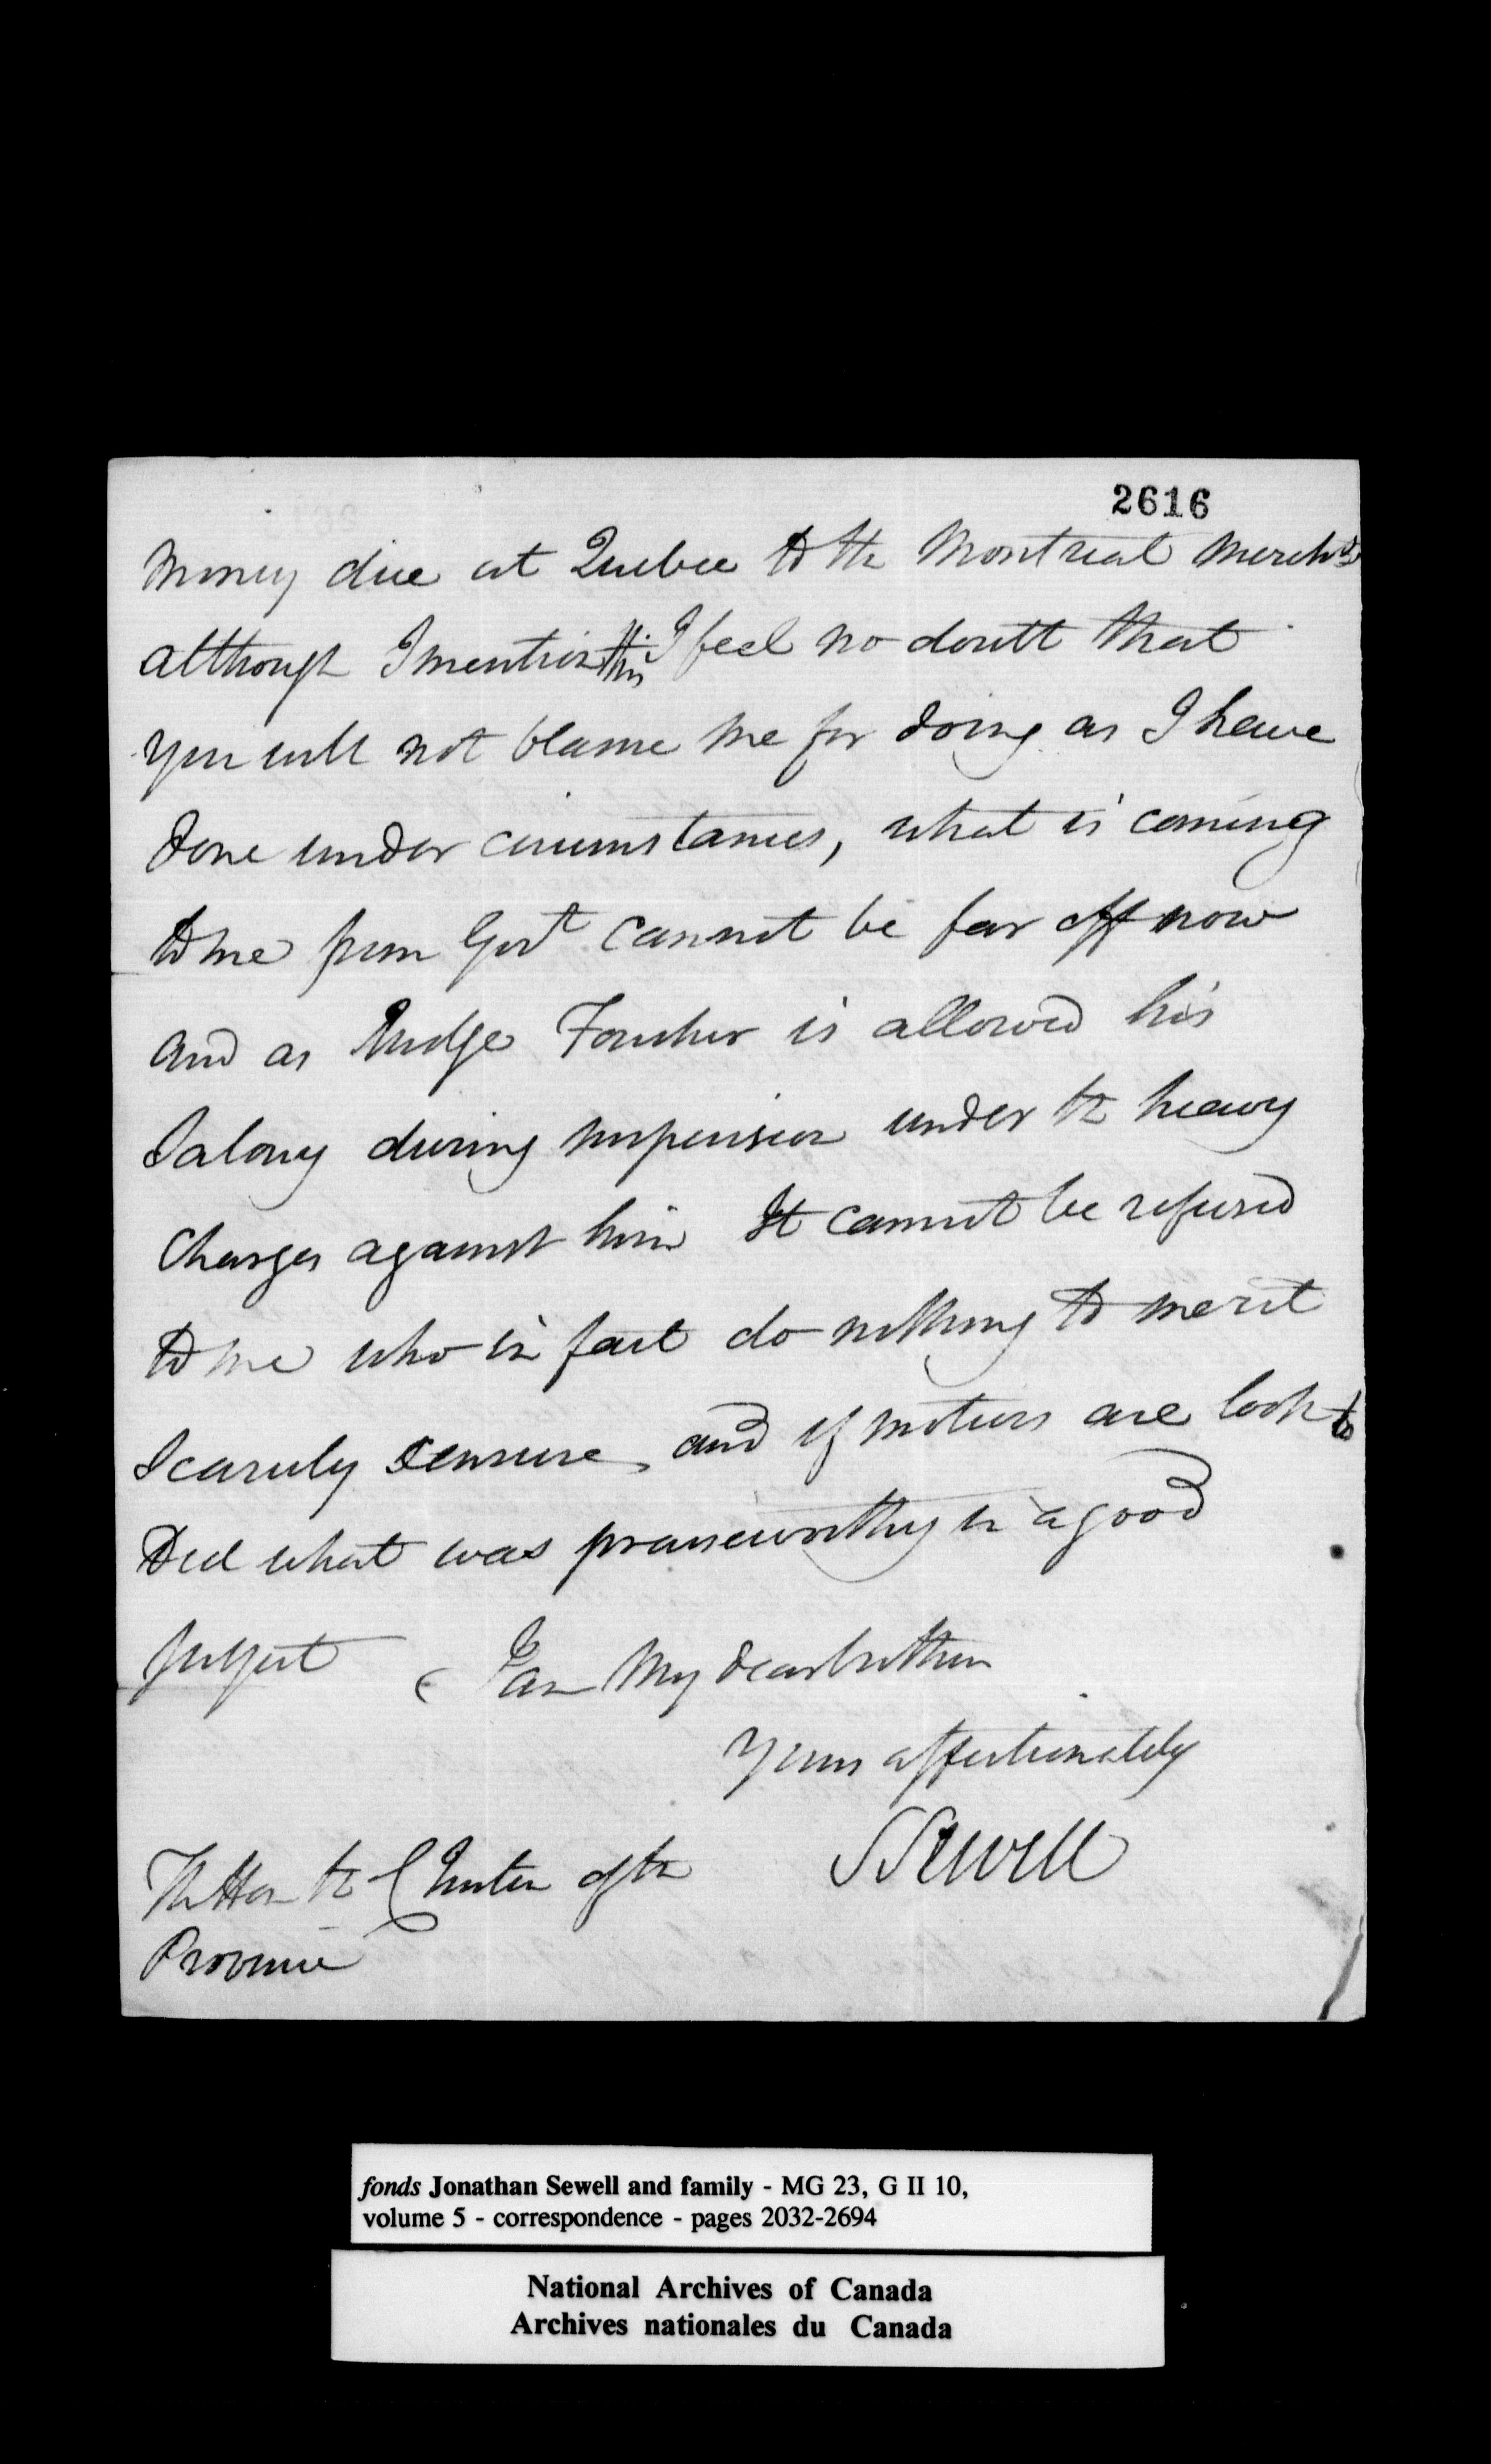 2616
Money due at Quebec to the Montreal Merchts
although I mention this I feel no doubt that
you will not blame me for doing as I have
done under circumstances, what is coming
to me from Govt cannot be far off now
and as Judge Foucher is allowed his
Salary during suspension under the heavy
Charges against him It cannot be refused
to me who in fact do nothing to merit
scarcely censure, and if motives are look to
Did what was praiseworthy in a good
subject I am My dear brother
Yours affectionately
S Sewell
The Hon the C Justice of the
Province
fonds Jonathan Sewell and family - MG 23, G II 10,
volume 5 - correspondence - pages 2032-2694
National Archives of Canada
Archives nationales du Canada